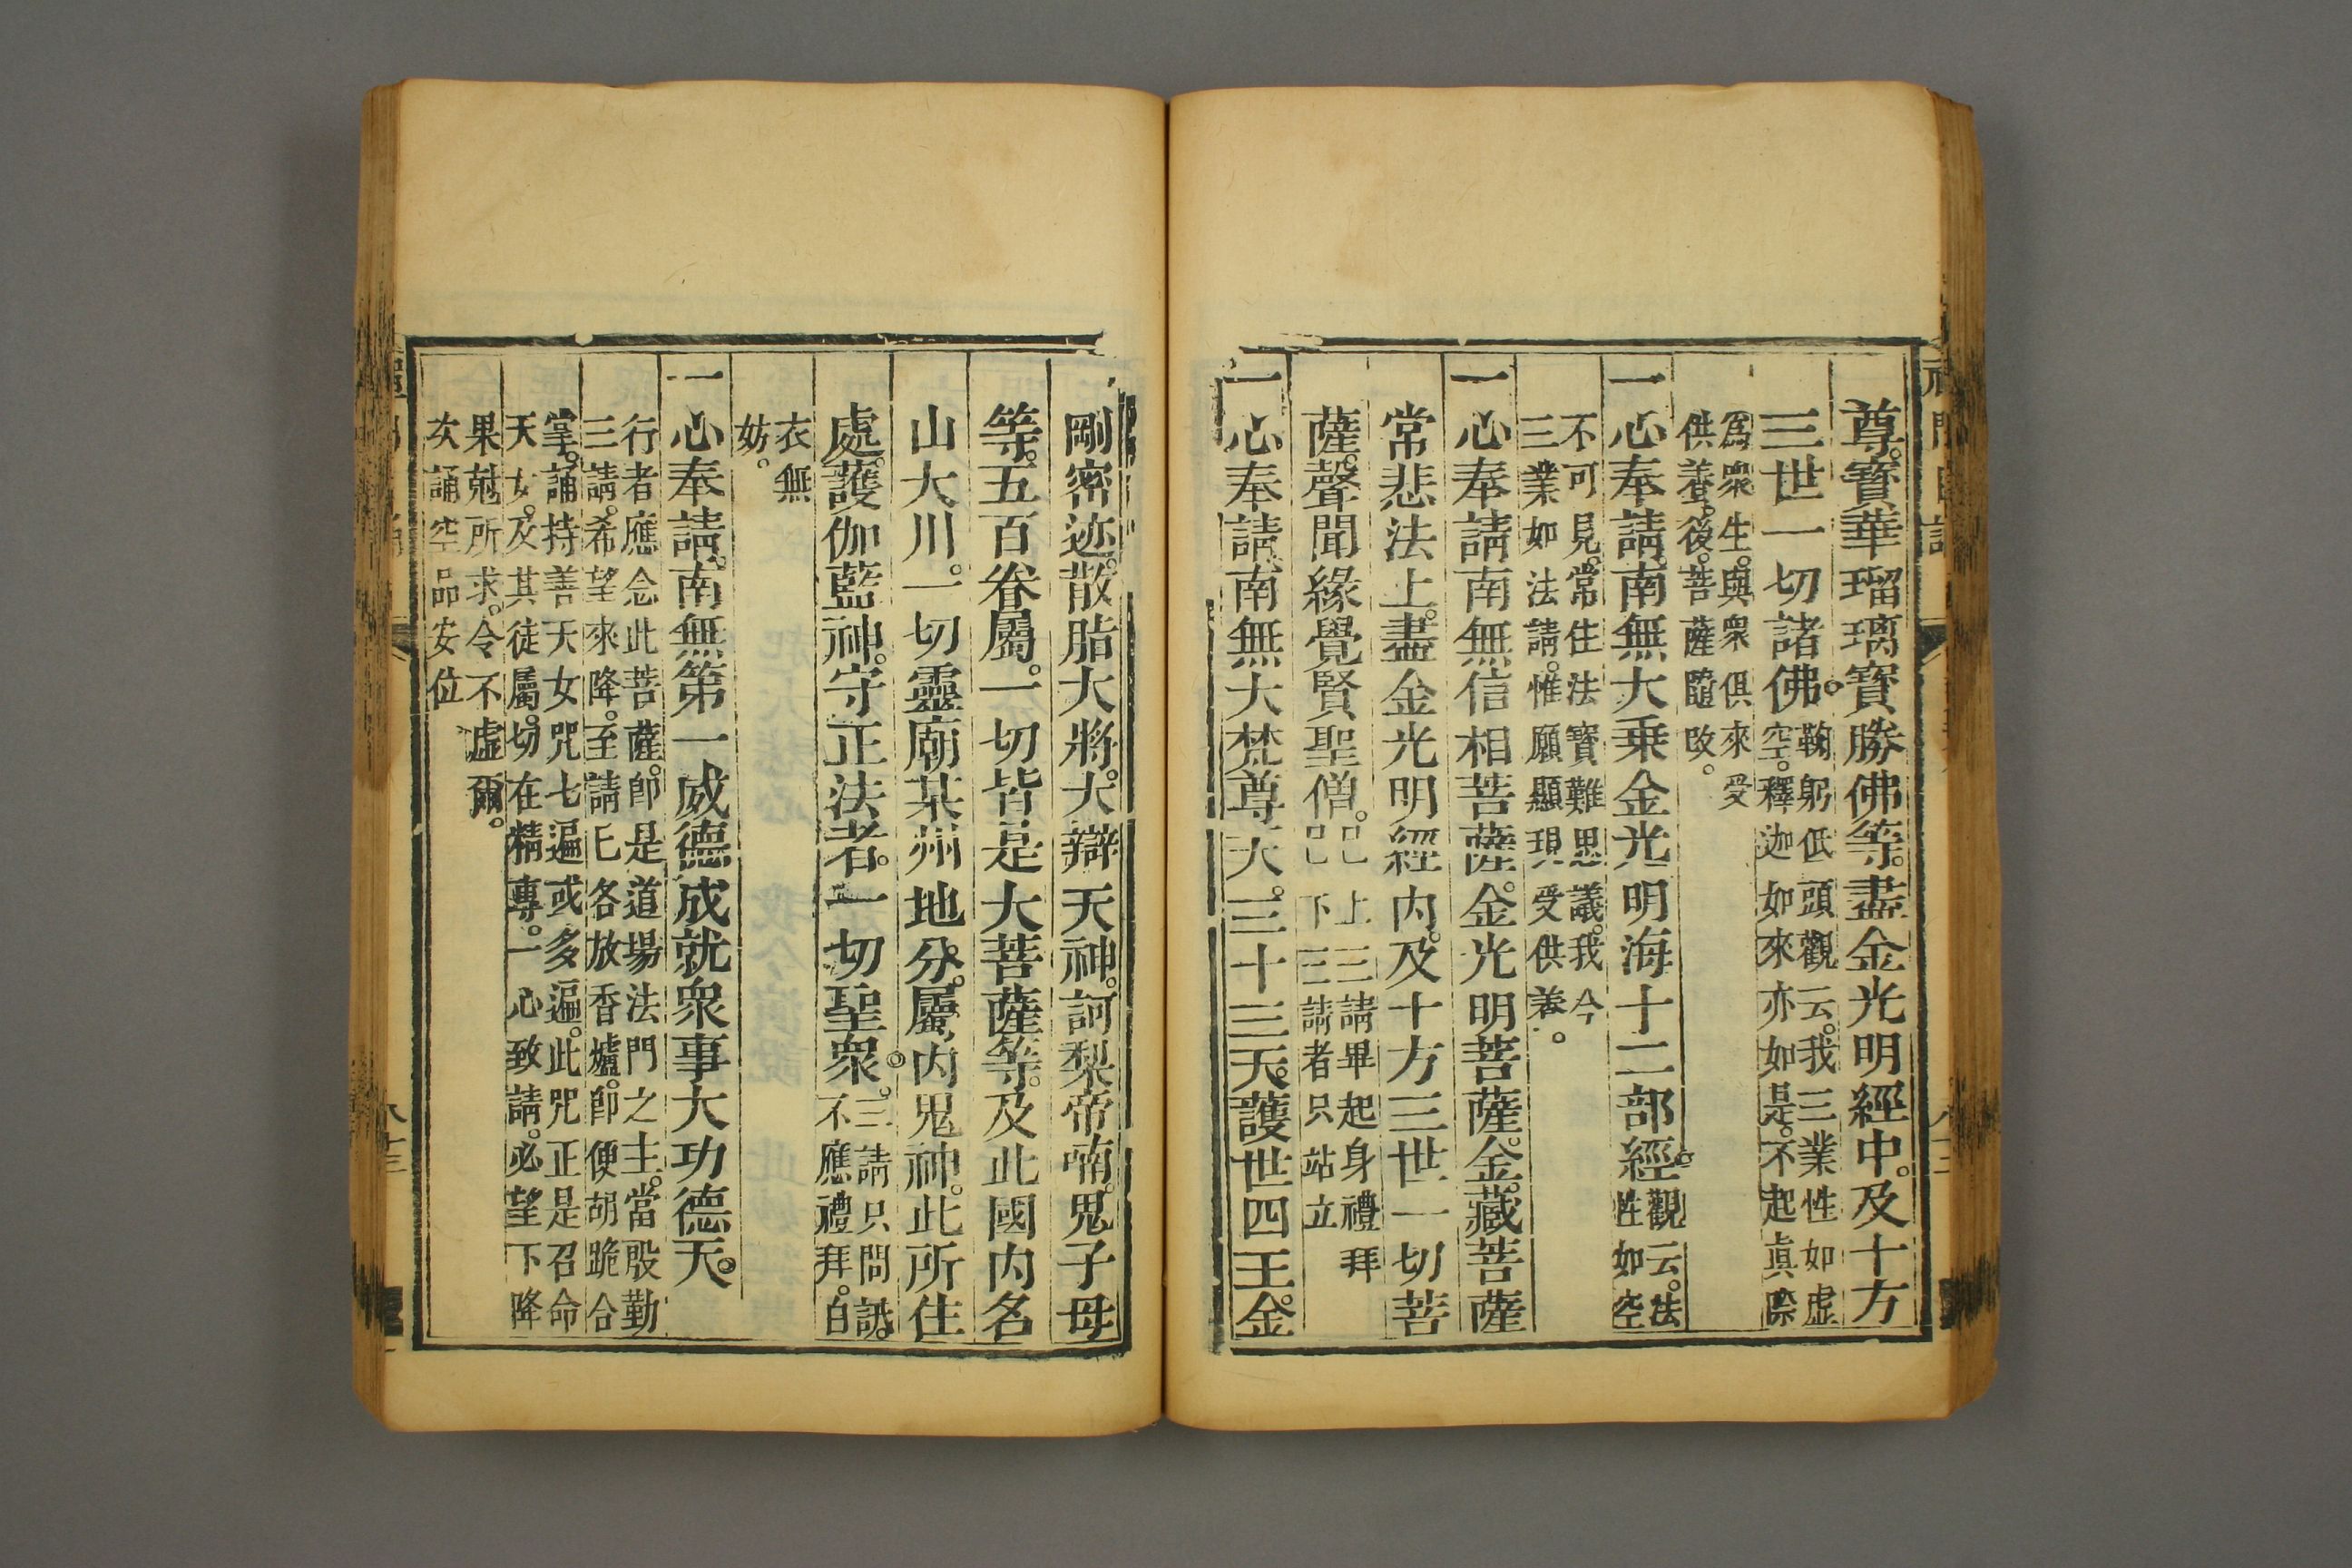 尊。寶華瑠璃寶勝佛等。盡金光明經中。及十方
三世一切諸佛。鞠躬低頭觀云。我三業性如虛
空。釋迦如來亦如是。不起眞際
爲衆生。與衆俱來受
供養。後。菩薩隨改。
一心奉請。南無大乗金光明海十二部經。觀云。法
性如空
不可見。常住法寶難思議。我今
三業如法請。惟願顯現受供養。
一心奉請南無信相菩薩。金光明菩薩。金藏菩薩
常悲法上。盡金光明經內。及十方三世一切菩
薩。聲聞緣覺賢聖僧。已上三請畢起身禮拜
已下三請者只站立
一心奉請。南無大梵尊天。三十三天。護世四王。金
剛密迹。散脂大將。大辯天神。訶梨帝喃。鬼子母
等。五百眷屬。一切皆是大菩薩等。及此國内名
山大川。一切靈廟某州地分。屬内鬼神。此所住
處。護伽藍神。守正法者。一切聖衆。三請只問訊。
不應禮拜。白
衣無
妨。
一心奉請。南無第一威德成就衆事大功德天。
行者應念此菩薩。卽是道場法門之主。當殷勤
三請。希望來降。至請匕各放香爐。卽便胡跪合
掌。誦持善天女咒七遍或多遍。此咒正是召命
天女。及其徒屬。切在精專。一心致請。必望下降
果尅所求。令不虛爾。
次誦空品安位